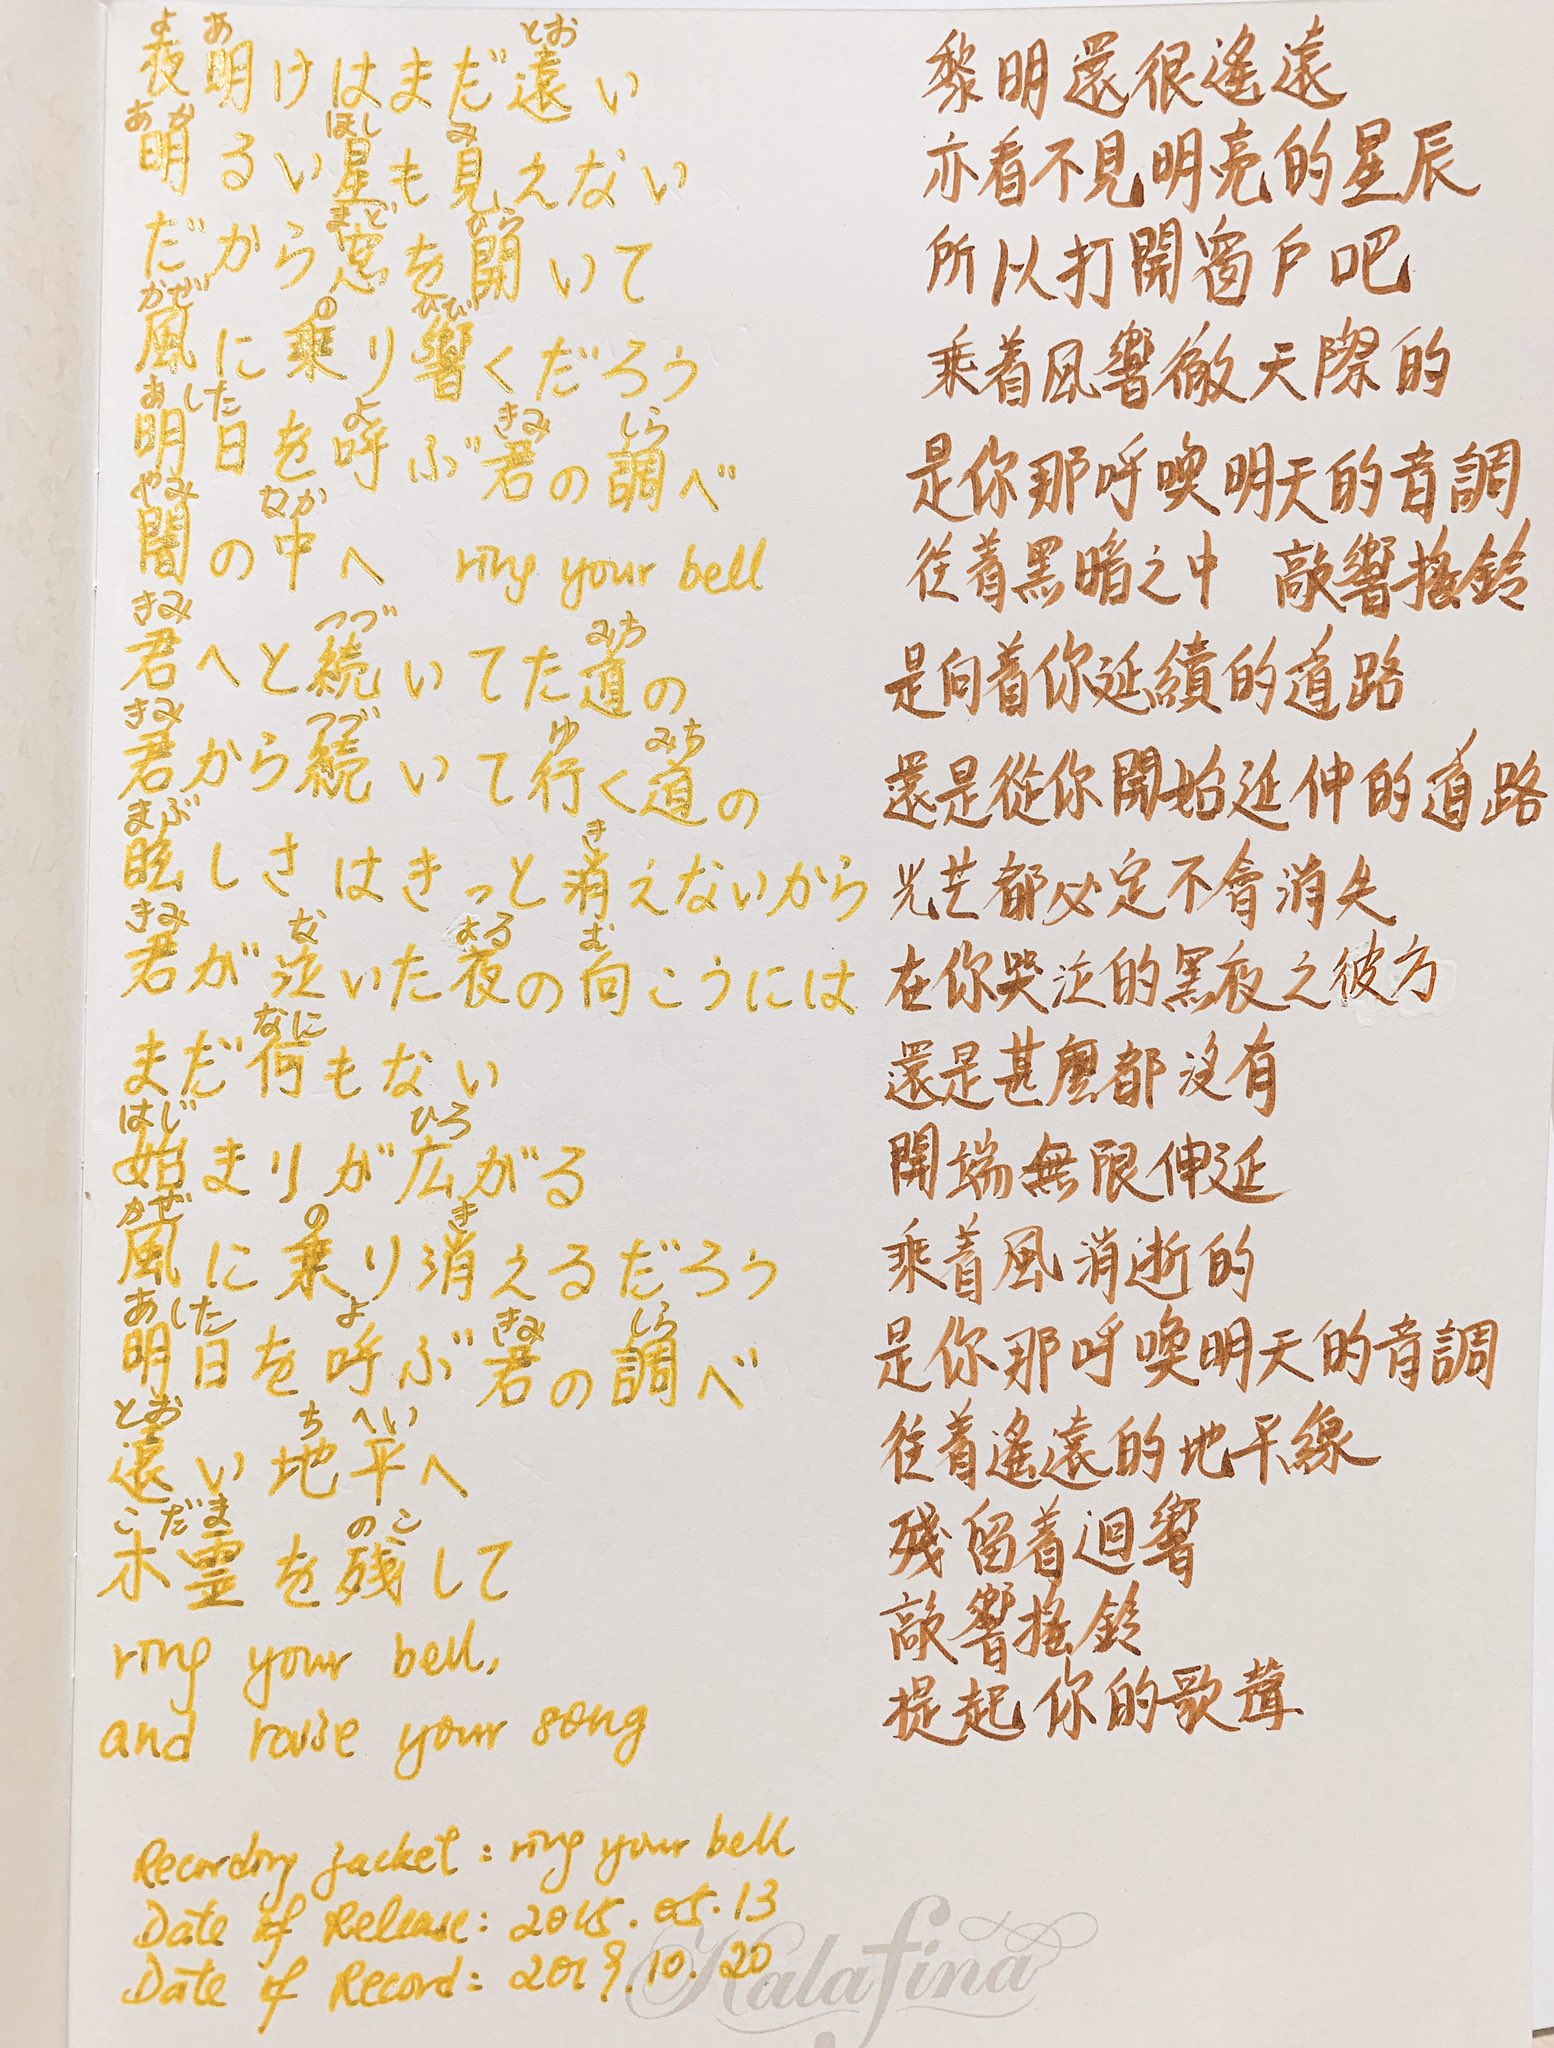 よ あ とお
夜明けはまだ遠い
あか ほし み
明るい星も見えない
まど ひら
だから窓を開いて
かぜ の ひび
風に乗り響くだろう
あした よ きみ しら
明日を呼ぶ君の調べ
やみ なか
闇の中へ ring your bell
きみ つづ みち
君へと続いてた道の
きみ つづ ゆ みち
君から続いて行く道の
まぶ き
眩しさはきっと消えないから
きみ な よる む
君が泣いた夜の向こうには
なに
まだ何もない
はじ ひろ
始まりが広がる
かぜ の き
風に乗り消えるだろう
あした よ きみ しら
明日を呼ぶ君の調べ
とお ちへい
遠い地平へ
こだま のこ
木霊を残して
ring your bell,
and raise your song
Recording jacket: ring your bell
Date of Release: 2015.05.13
Date of Record: 2019.10.20
黎明還很遙遠
亦看不見明亮的星辰
所以打開窗戶吧
乘着風響徹天際的
是你那呼喚明天的音調
往着黑暗之中 敲響搖鈴
是向着你延續的道路
還是從你開始延伸的道路
光芒都必定不會消失
在你哭泣的黑夜之彼方
還是甚麼都沒有
開端無限伸延
乘着風消逝的
是你那呼喚明天的音調
往着遙遠的地平線
殘留着迴響
敲響搖鈴
提起你的歌聲
Kalafina